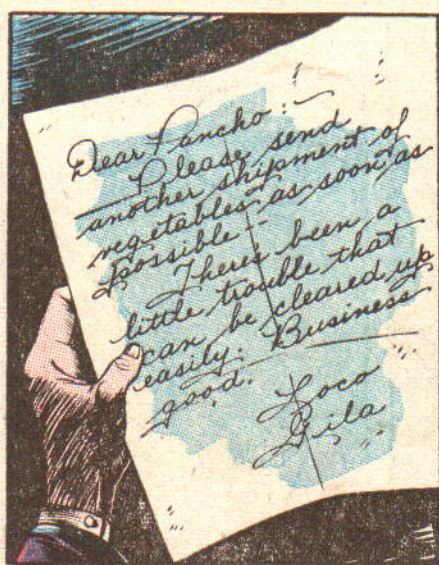 Dear Pancho:—
Please send
another shipment of
vegetables as soon as
possible—
There's been a
little trouble that
can be cleared up
easily. Business
good.
Loco
Gila